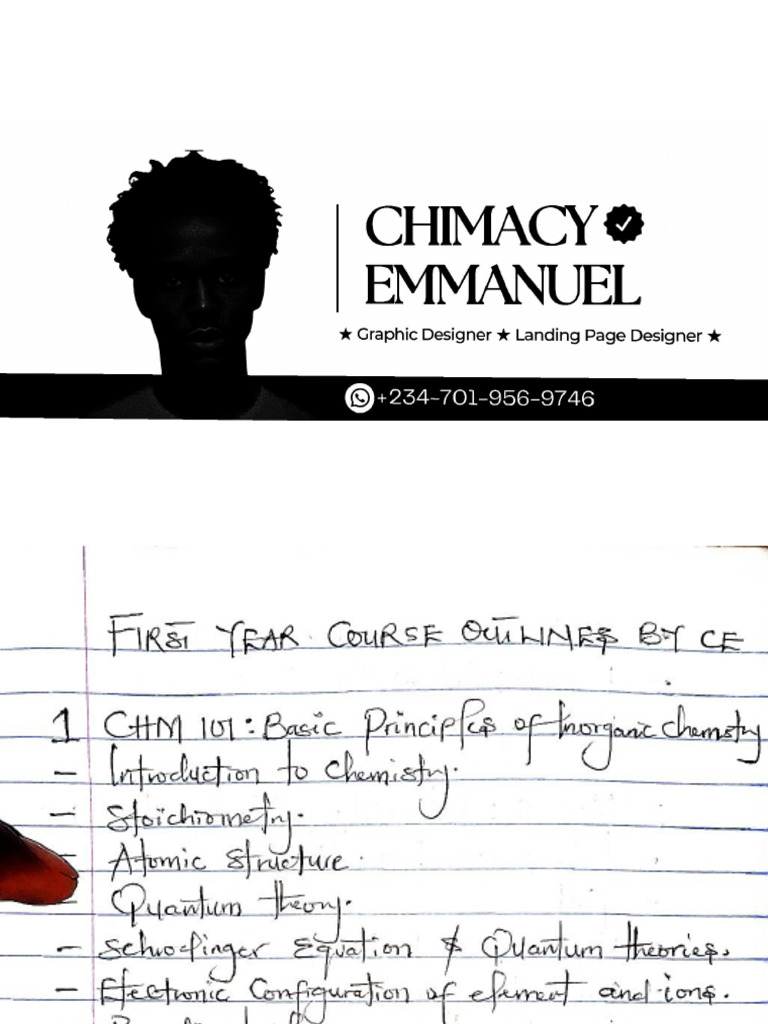 CHIMACY
EMMANUEL
★ Graphic Designer ★ Landing Page Designer ★
+234-701-956-9746
FIRST YEAR COURSE OUTLINES BY CE
1 CHM 101: Basic Principles of Inorganic chemstry
- Introduction to Chemistry.
- Stoichiometry.
Atomic structure.
- Quantum theory.
- Schrodinger Equation & Quantum theories.
- Electronic Configuration of element and ions.